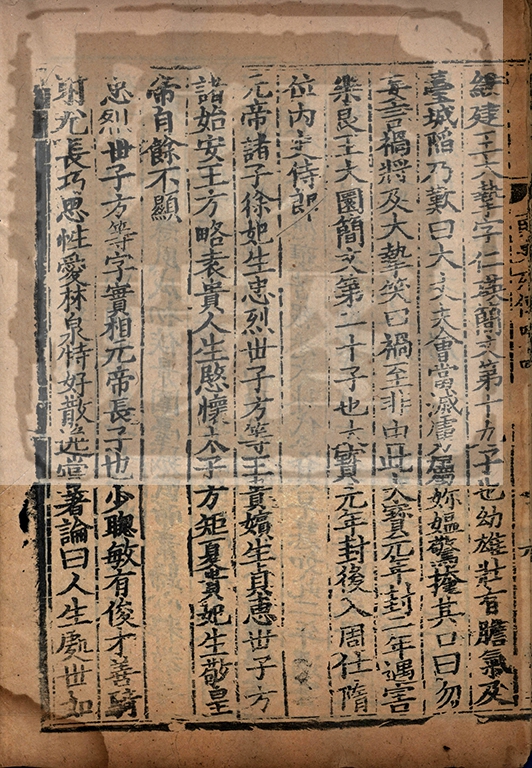 綏建王大摯字仁英簡文第十九子也幼雄壯有膽氣及
臺城陷乃歎曰大丈夫會當滅虜屬妳媼驚掩其口曰勿
妄言禍將及大摯笑曰禍至非由此大寶元年封二年遇害
樂良王大圜簡文第二十子也大寶元年封後入周仕隋
位內史侍郎
元帝諸子徐妃生忠烈世子方等王貴嬪生貞惠世子方
諸始安王方略袁貴人生愍懷太子方矩夏貴妃生敬皇
帝自餘不顯
忠烈世子方等字實相元帝長子也少聰敏有俊才善騎
射尤長巧思性愛林泉特好散逸嘗著論曰人生處世如